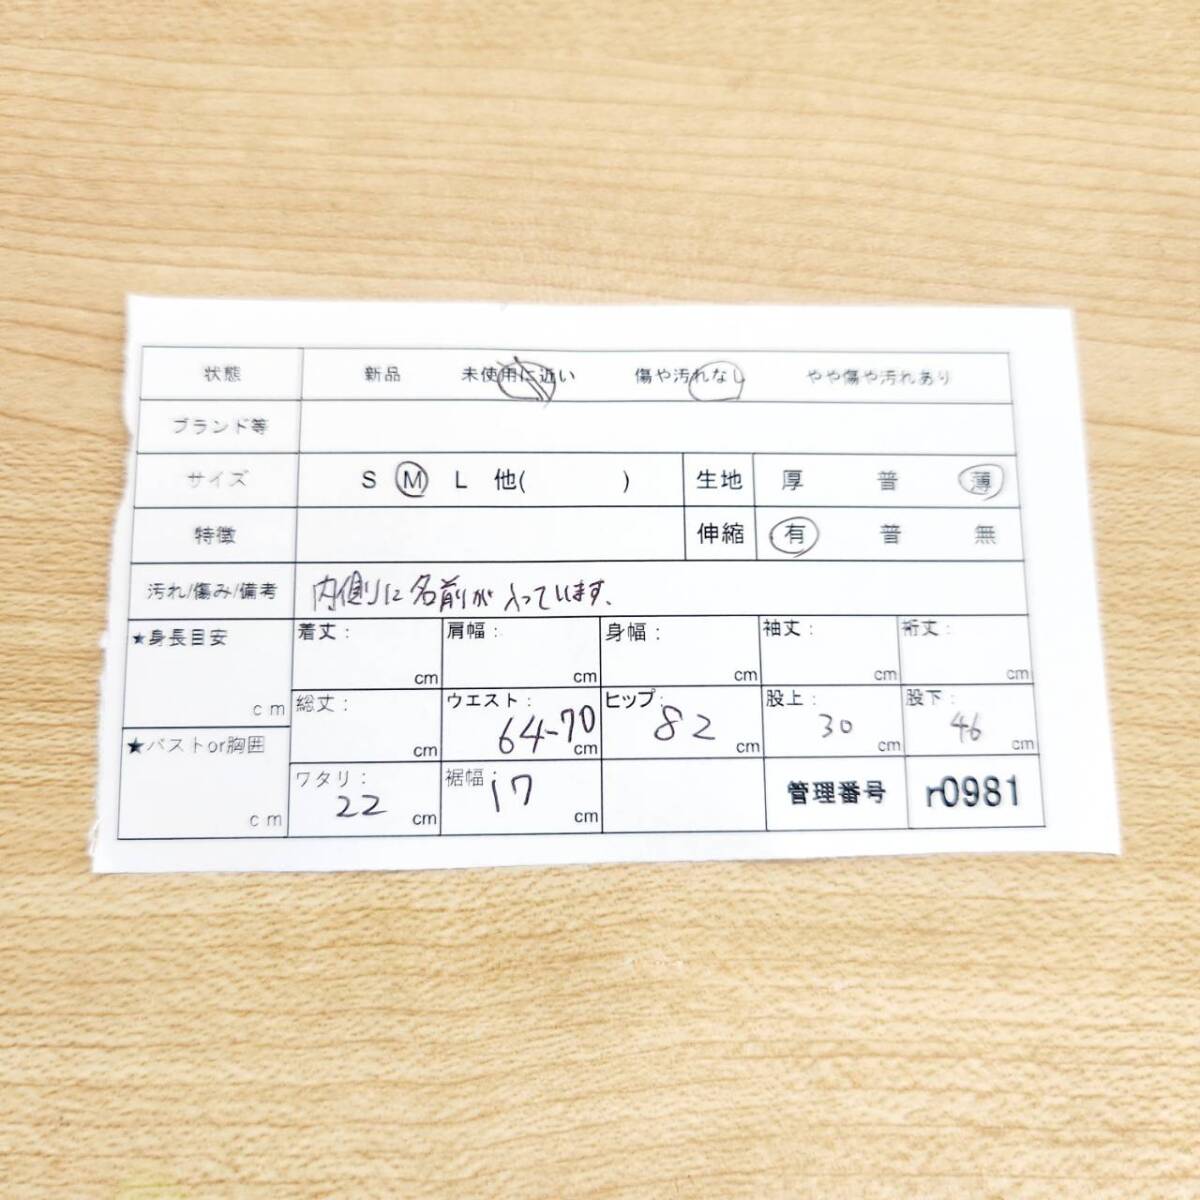 状態 新品 未使用に近い 傷や汚れなし やや傷や汚れあり
ブランド等
サイズ S M L 他( ) 生地 厚 普 薄
特徴 伸縮 有 普 無
汚れ/傷み/備考 内側に名前が入っています.
★身長目安 cm 着丈: cm 肩幅: cm 身幅: cm 袖丈: cm 裄丈: cm
総丈: cm ウエスト: 64-70 cm ヒップ: 82 cm 股上: 30 cm 股下: 46 cm
★バストor胸囲 cm ワタリ: 22 cm 裾幅: 17 cm 管理番号 r0981